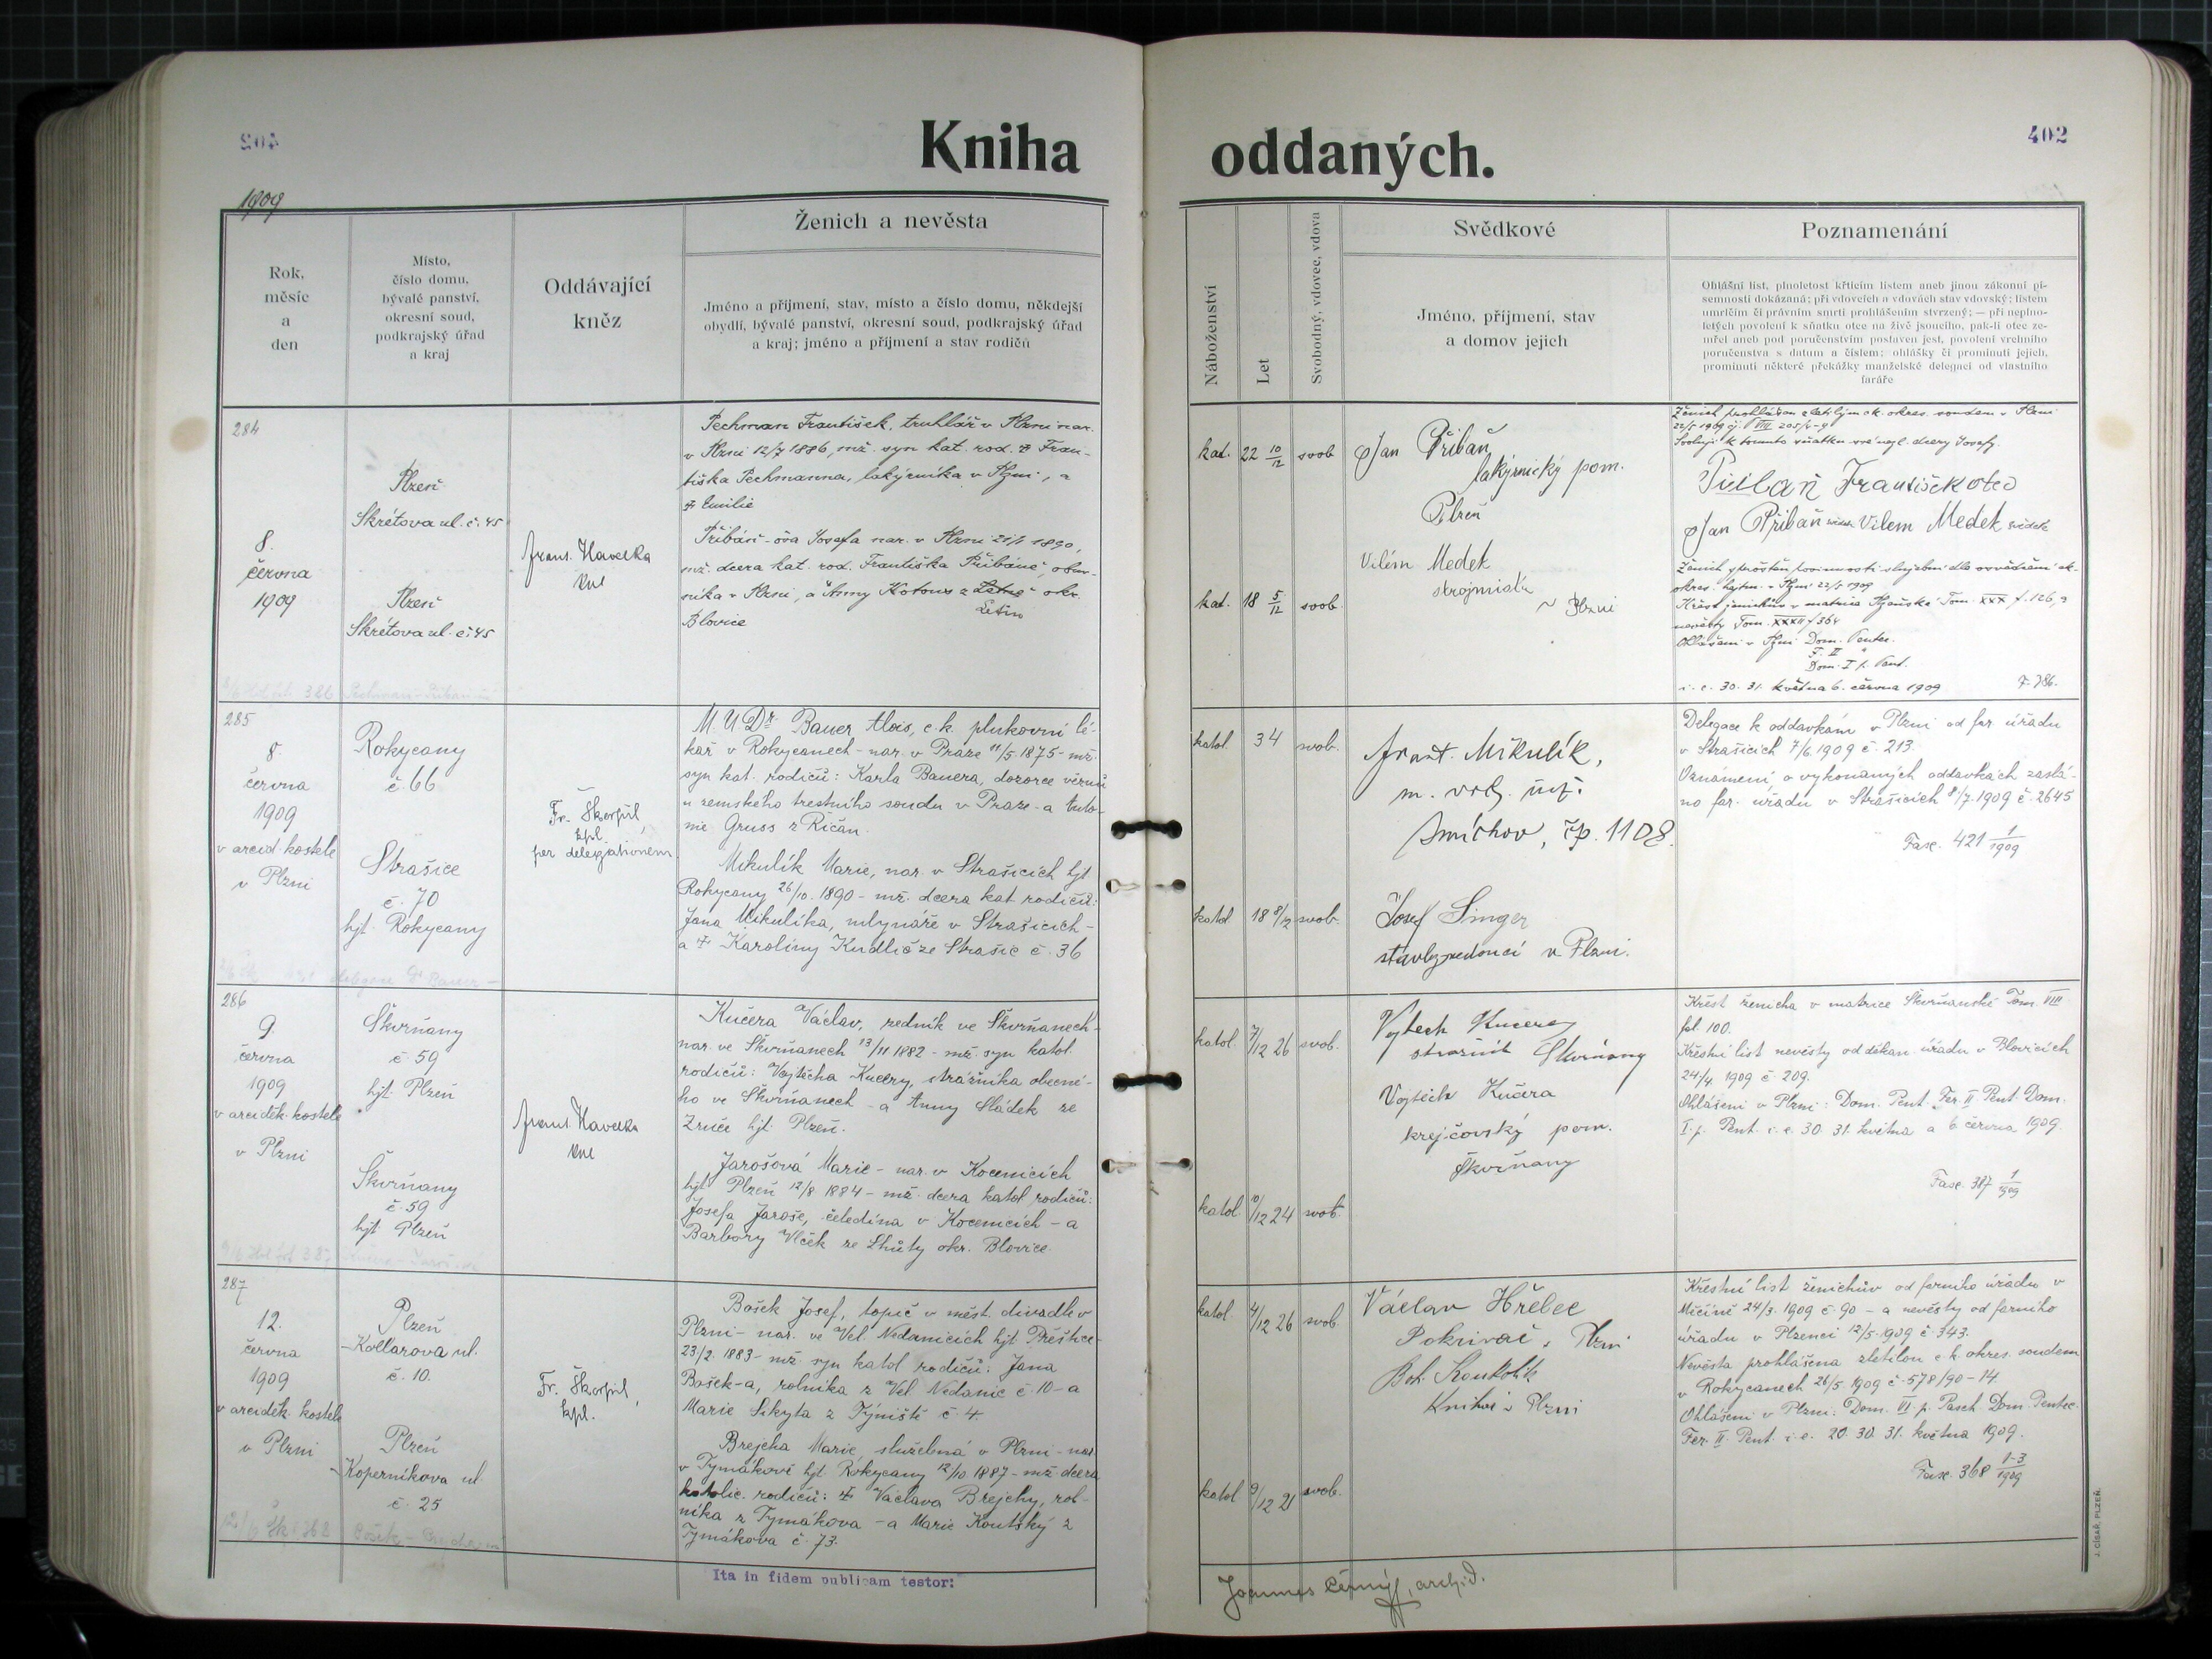 Kniha oddaných.
402
1909
Rok,
měsíc
a
den
Místo,
číslo domu,
bývalé panství,
okresní soud,
podkrajský úřad
a kraj
Oddávající
kněz
Ženich a nevěsta
Jméno a příjmení, stav, místo a číslo domu, někdejší
obydlí, bývalé panství, okresní soud, podkrajský úřad
a kraj; jméno a příjmení a stav rodičů
Náboženství
Let
Svobodný, vdovec, vdova
Svědkové
Jméno, příjmení, stav
a domov jejich
Poznamenání
Ohlášní list, plnoletost křticím listem aneb jinou zákonní pí-
semností dokázaná; při vdovcích a vdovách stav vdovský; listem
umrlčím či právním smrti prohlášením stvrzený; — při neplno-
letých povolení k sňatku otce na živě jsoucího, pak-li otec ze-
mřel aneb pod poručenstvím postaven jest, povolení vrchního
poručenstva s datum a číslem; ohlášky či prominutí jejich,
prominutí některé překážky manželské delegaci od vlastního
faráře
284
8.
června
1909
Plzeň
Skrétova ul. č. 45
Plzeň
Skrétova ul. č. 45
Frant. Havelka
Pechman František, truhlář v Plzni nar.
v Plzni 12/7 1886, mž. syn kat. rod. † Fran-
tiška Pechmanna, lakýrníka v Plzni, a
† Emilie
Přibáň-ova Josefa nar. v Plzni 21/1 1890,
mž. dcera kat. rod. Františka Přibáně, obuv-
níka v Plzni, a Anny Kotous z Letin okr.
Blovice
kat. 22 10/12 svob
kat. 18 5/12 svob.
Jan Přibaň
lakýrnický pom.
Plzeň
Vilém Medek
strojmistr
v Plzni
Ženich prohlášen zletilým c.k. okres. soudem v Plzni
22/5 1909 čj. VIII 205/4-9
Svoluji k tomuto sňatku své nezl. dcery Josefy.
Přibaň František otec
Jan Přibaň svědek Vilem Medek svědek
okres. hejtm. v Plzni 22/5 1909
Křest ženichův v matrice Plzeňské Tom. XXX f. 126, a
nevěsty Tom. XXXII f 364
Ohlášeni v Plzni Dom. Pentec.
F. II "
Dom. I p. Pent.
i. e. 30. 31. května 6. června 1909 F. 386.
285
8.
června
1909
v arcid. kostele
v Plzni
Rokycany
č. 66
Strašice
č. 70
hjt. Rokycany
Fr. Škorpil,
kpl.
per delegationem
M. U Dr. Bauer Alois, c. k. plukovní lé-
kař v Rokycanech - nar. v Praze 11/5 1875 - mž.
syn kat. rodičů: Karla Bauera, dozorce věznů
u zemského trestního soudu v Praze - a Anto-
nie Gruss z Říčan.
Mikulík Marie, nar. v Strašicích hjt
Rokycany 26/10. 1890 - mž. dcera kat. rodičů:
Jana Mikulíka, mlynáře v Strašicích -
a † Karoliny Kudlič ze Strašic č. 36
katol. 34 svob.
katol 18 8/12 svob.
Frant. Mikulík,
Smíchov, čp. 1108.
Josef Singer
stavbyvedoucí v Plzni.
Delegace k oddavkám v Plzni od far. úřadu
v Strašicích 7/6. 1909 č. 213.
Oznámení o vykonaných oddavkách zaslá-
no far. úřadu v Strašicích 8/7. 1909 č. 2645
Fasc. 421 1/1909
286
9.
června
1909
v arciděk. kostele
v Plzni
Škvrňany
č. 59
hjt. Plzeň
Škvrňany
č. 59
hjt. Plzeň
Frant. Havelka
Kučera Václav, zedník ve Škvrňanech -
nar. ve Škvrňanech 13/11 1882 - mž. syn katol.
rodičů: Vojtěcha Kučery, strážníka obecní-
ho ve Škvrňanech - a Anny Sládek ze
Zruče hjt. Plzeň.
Jarošová Marie - nar. v Kocenicích
hjt. Plzeň 12/8 1884 - mž. dcera katol. rodičů:
Josefa Jaroše, čeledína v Kocenicích - a
Barbory Vlček ze Lhůty okr. Blovice.
katol. 7/12 26 svob.
katol. 10/12 24 svob.
Vojtech Kucera
stražnik Skvrňany
Vojtěch Kučera
krejčovský pom.
Škvrňany
Křest ženicha v matrice Škvrňanské Tom. VIII
fol. 100.
Křestní list nevěsty od děkan. úřadu v Blovicích
24/4. 1909 č. 209.
Ohlášeni v Plzni: Dom. Pent. Fer. II. Pent. Dom.
I. p. Pent. i. e. 30. 31. května a 6. června 1909.
Fasc. 387 1/1909
287
12.
června
1909
v arciděk. kostele
v Plzni
Plzeň
Kollarova ul.
č. 10.
Plzeň
Koperníkova ul
č. 25
Fr. Škorpil,
kpl.
Bošek Josef, topič v měst. divadle v
Plzni - nar. ve Vel Nedanicích hjt Přeštice
23/2. 1883 - mž. syn katol rodičů: Jana
Bošek-a, rolníka z Vel. Nedanic č. 10 - a
Marie Sikyta z Týniště č. 4
Brejcha Marie, služebná v Plzni - nar.
v Tymákově hjt. Rokycany 12/10 1887 - mž. dcera
katolic. rodičů: † Václava Brejchy, rol-
níka z Tymákova - a Marie Koutský z
Tymákova č. 73.
katol. 4/12 26 svob.
katol 9/12 21 svob.
Václav Hřebec
Pokrivač v Plzni
Boh. Koukolik
Knihař v Plzni
Křestní list ženichův od farního úřadu v
Měčíně 24/3. 1909 č. 90 - a nevěsty od farního
úřadu v Plzenci 12/5. 1909 č. 343.
Nevěsta prohlášena zletilou c. k. okres. soudem
v Rokycanech 26/5 1909 č. 578/90-14
Ohlášeni v Plzni: Dom. VI. p. Pasch. Dom. Pentec.
Fer. II. Pent. i. e. 20. 30. 31. května 1909.
Fasc. 368 1-3/1909
Ita in fidem publicam testor:
Joannes Černý, archid.
J. CÍSAŘ, PLZEŇ.